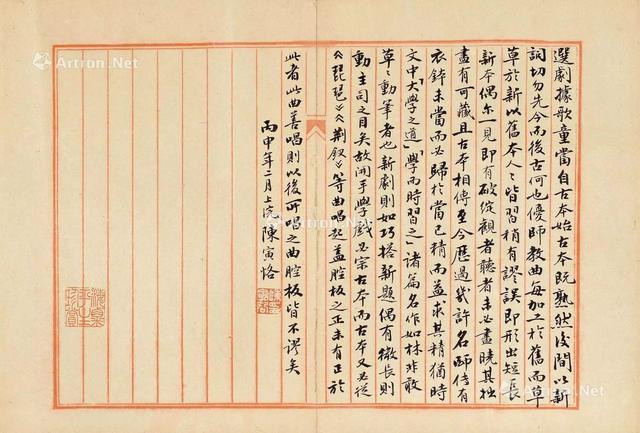 選劇據歌童當自古本始古本既熟然後間以新
詞切勿先今而後古何也優師教曲每加工於舊而草
草於新以舊本人々皆習稍有謬誤即形出短長
新本偶尔一見即有破綻觀者聽者未必盡曉其拙
盡有可藏且古本相傳至今歷過幾許名師傳有
衣鉢未當而必歸於當已精而益求其精猶時
文中「大學之道」「學而時習之」諸篇名作如林非敢
草々動筆者也新劇則如巧搭新題偶有微長則
動主司之目矣故開手學戲必宗古本而古本又必從
《琵琶》《荆釵》等曲唱起蓋腔板之正未有正於
此者此曲善唱則以後所唱之曲腔板皆不謬矣
丙申年二月上浣陳寅恪
Artron.Net
雅昌艺术网